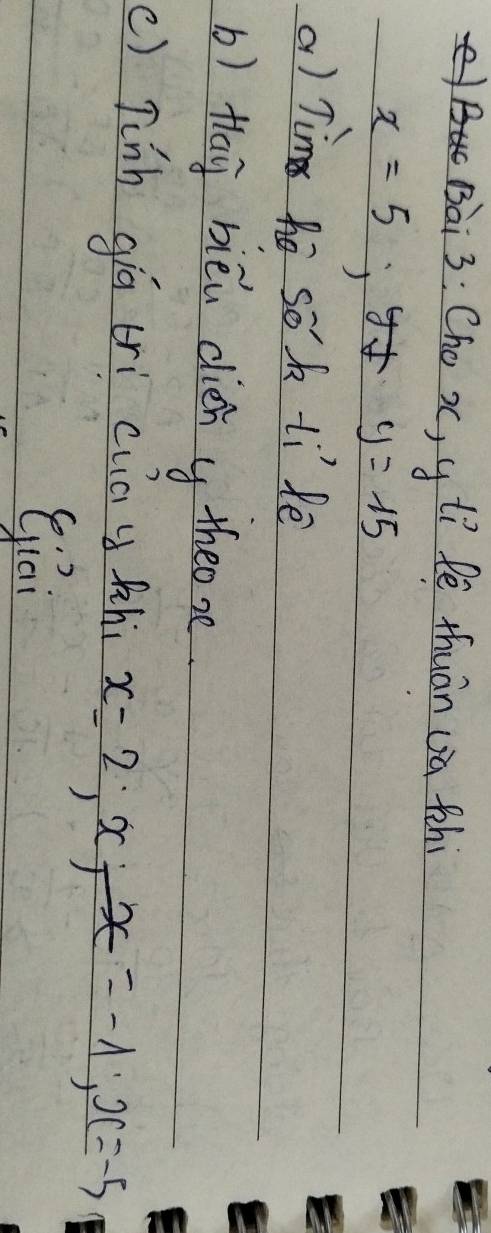 Bài 3: Cho x, y tỉ lê thuân và khi
x = 5; y = 15
a) Tìm hê số k tỉ lê
b) Hãy biểu diễn y theo x.
c) Tính giá trị của y khi x = 2; x = -1; x = -5
Giải